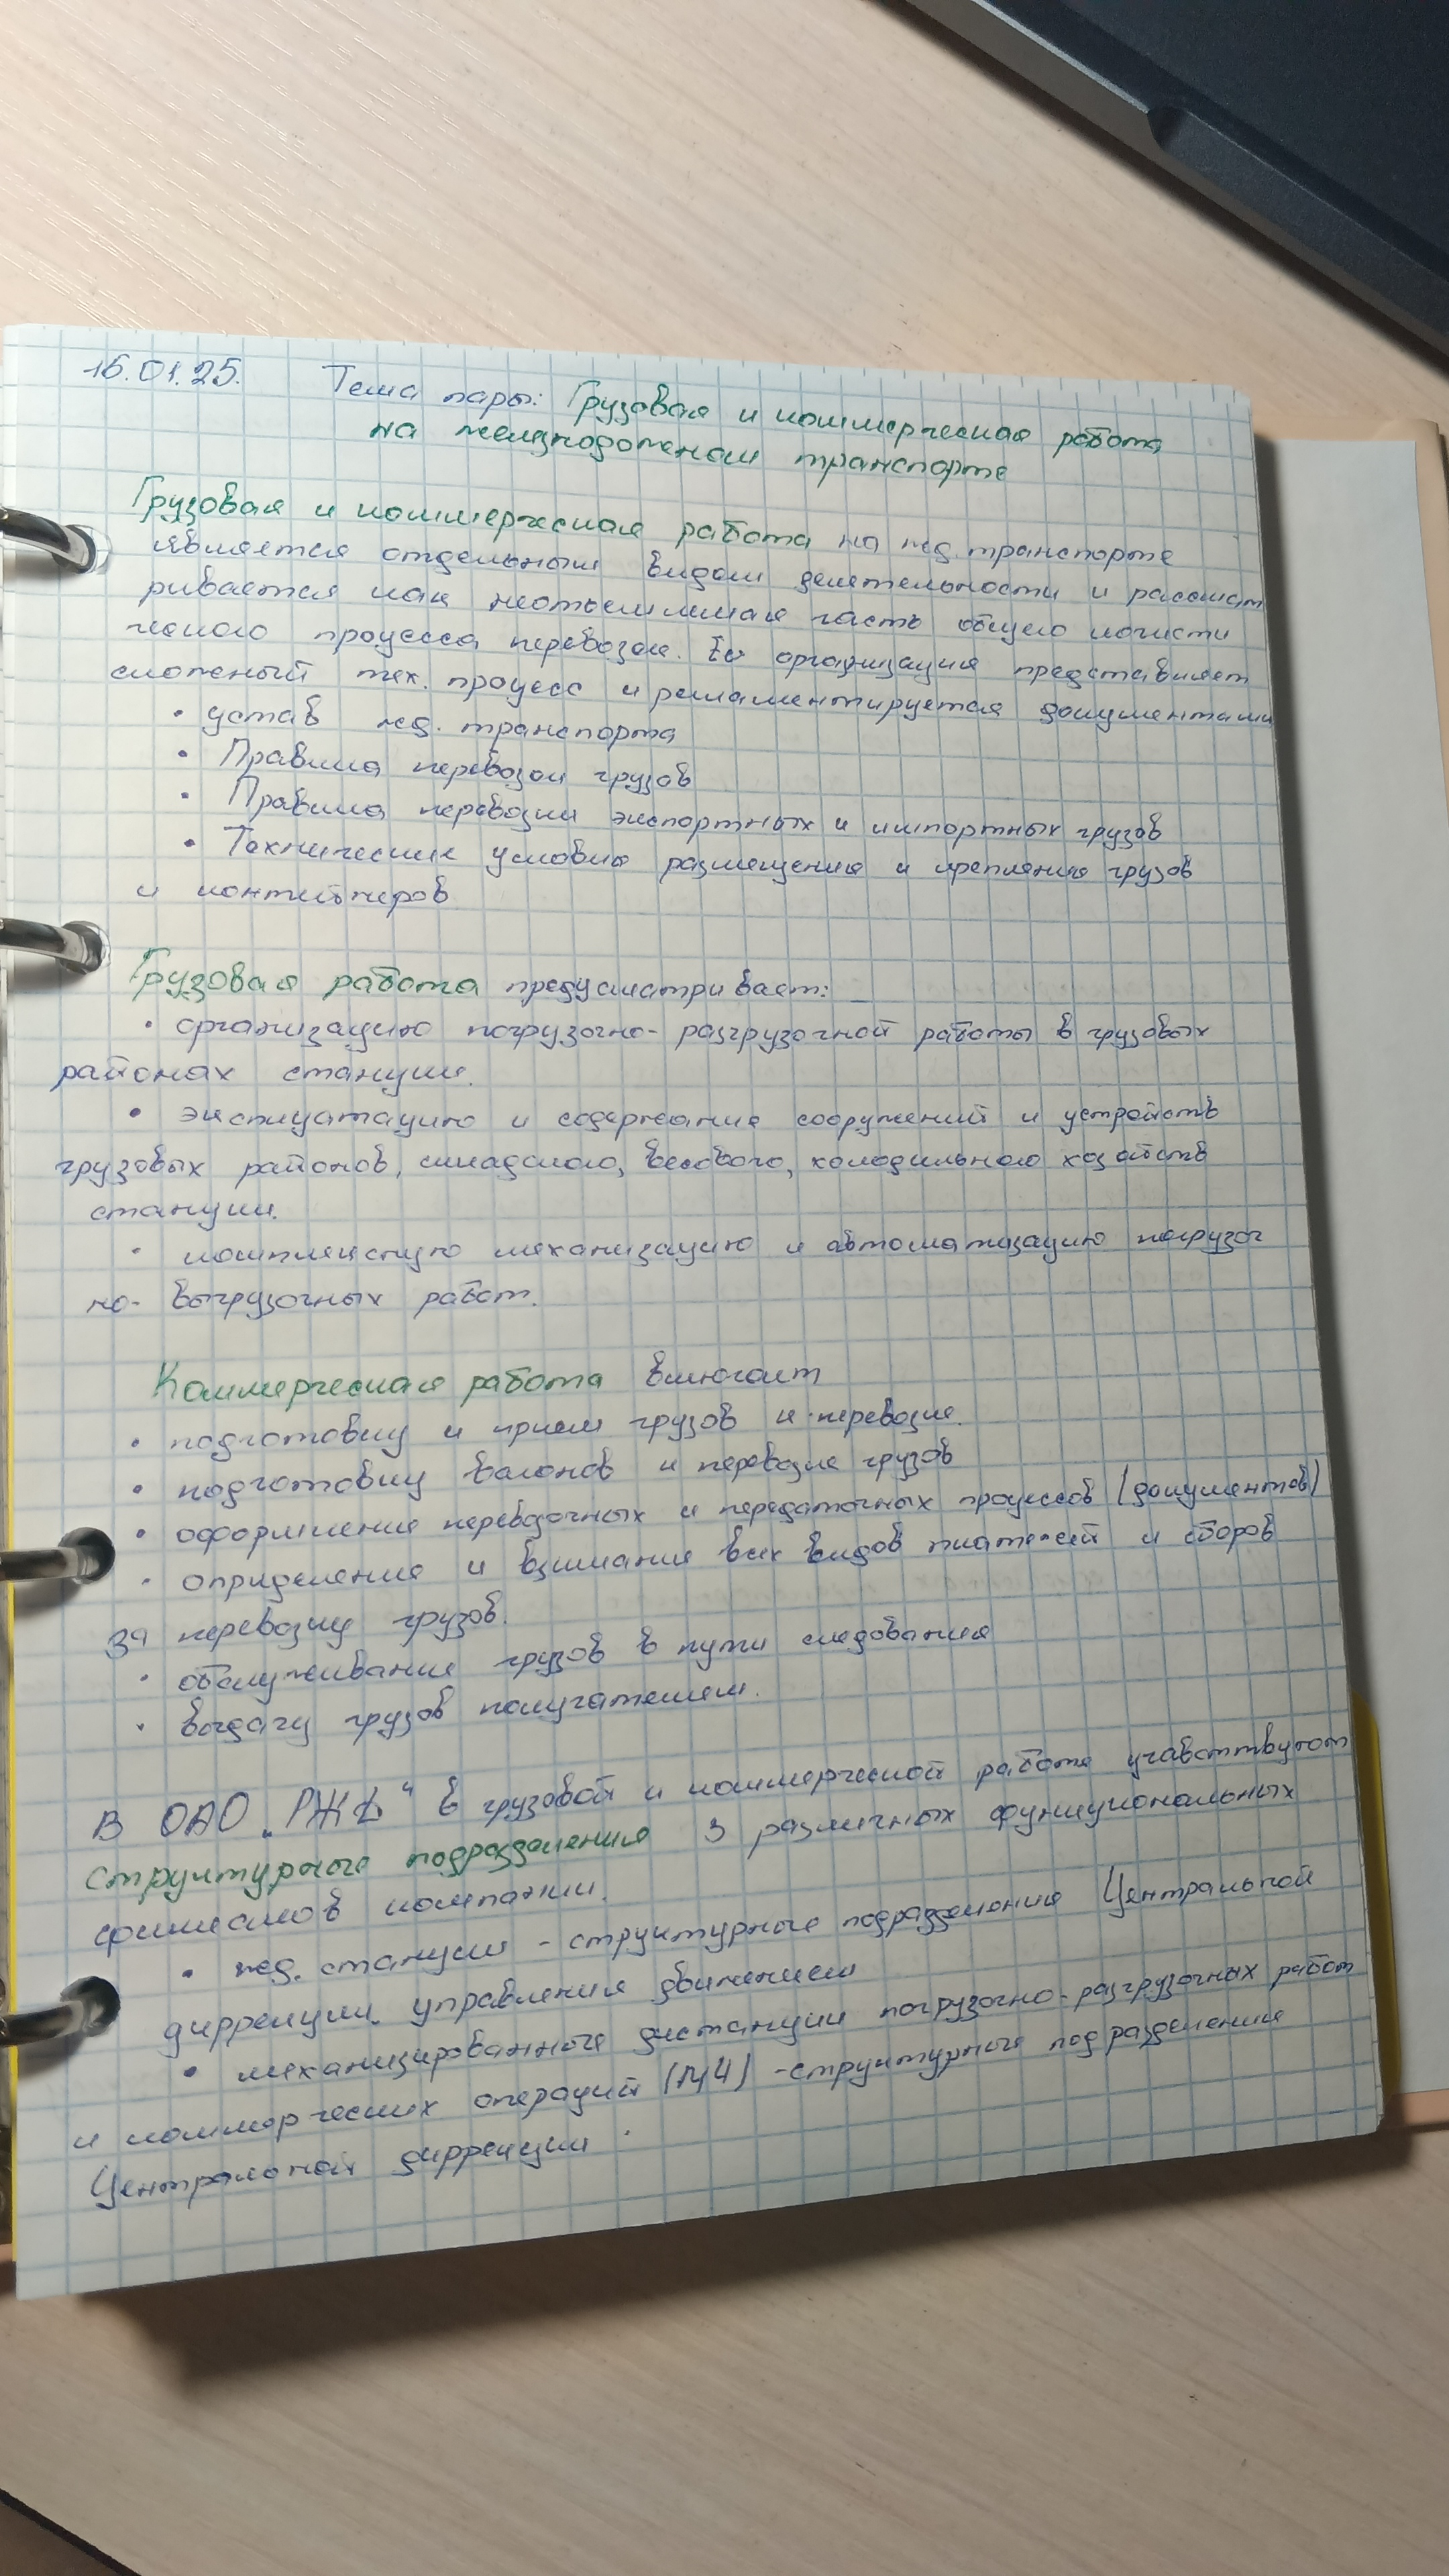 16.01.25. Тема пары: Грузовая и коммерческая работа
на железнодоженом транспорте
Грузовая и коммерческая работа на жд. транспорте
является отдельным видом деятельности и рассмат
ривается как неотъемлемая часть общего логисти
ческого процесса перевозок. Её организация представляет
сложеный тех. процесс и регламентируется документами
• устав жд. транспорта
• Правила перевозок грузов
• Правила перевозки экспортных и импортных грузов
• Технические условия размещения и крепления грузов
и контейнеров
Грузовая работа предусматривает:
• организацию погрузочно-разгрузочной работы в грузовых
районах станции.
• эксплуатацию и содержание сооружений и устройств
грузовых районов, складского, весового, холодильного хозяйств
станции.
• комплексную механизацию и автоматизацию погрузоч
но-выгрузочных работ.
Коммерческая работа включает
• подготовку и прием грузов к перевозке.
• подготовку вагонов к перевозке грузов
• оформление перевозочных и передаточных процессов (документов)
• определение и взимание всех видов платежей и сборов
за перевозку грузов.
• обслуживание грузов в пути следования
• выдачу грузов получателем.
В ОАО „РЖД" в грузовой и коммерческой работе учавствуют
структурные подразделения 3 различных функциональных
филиалов компании.
• жд. станции - структурные подразделения Центральной
диррекции управления движением
• механизированные дистанции погрузочно-разгрузочных работ
и коммерческих операций (МЧ) - структурные подразделения
Центральной диррекции